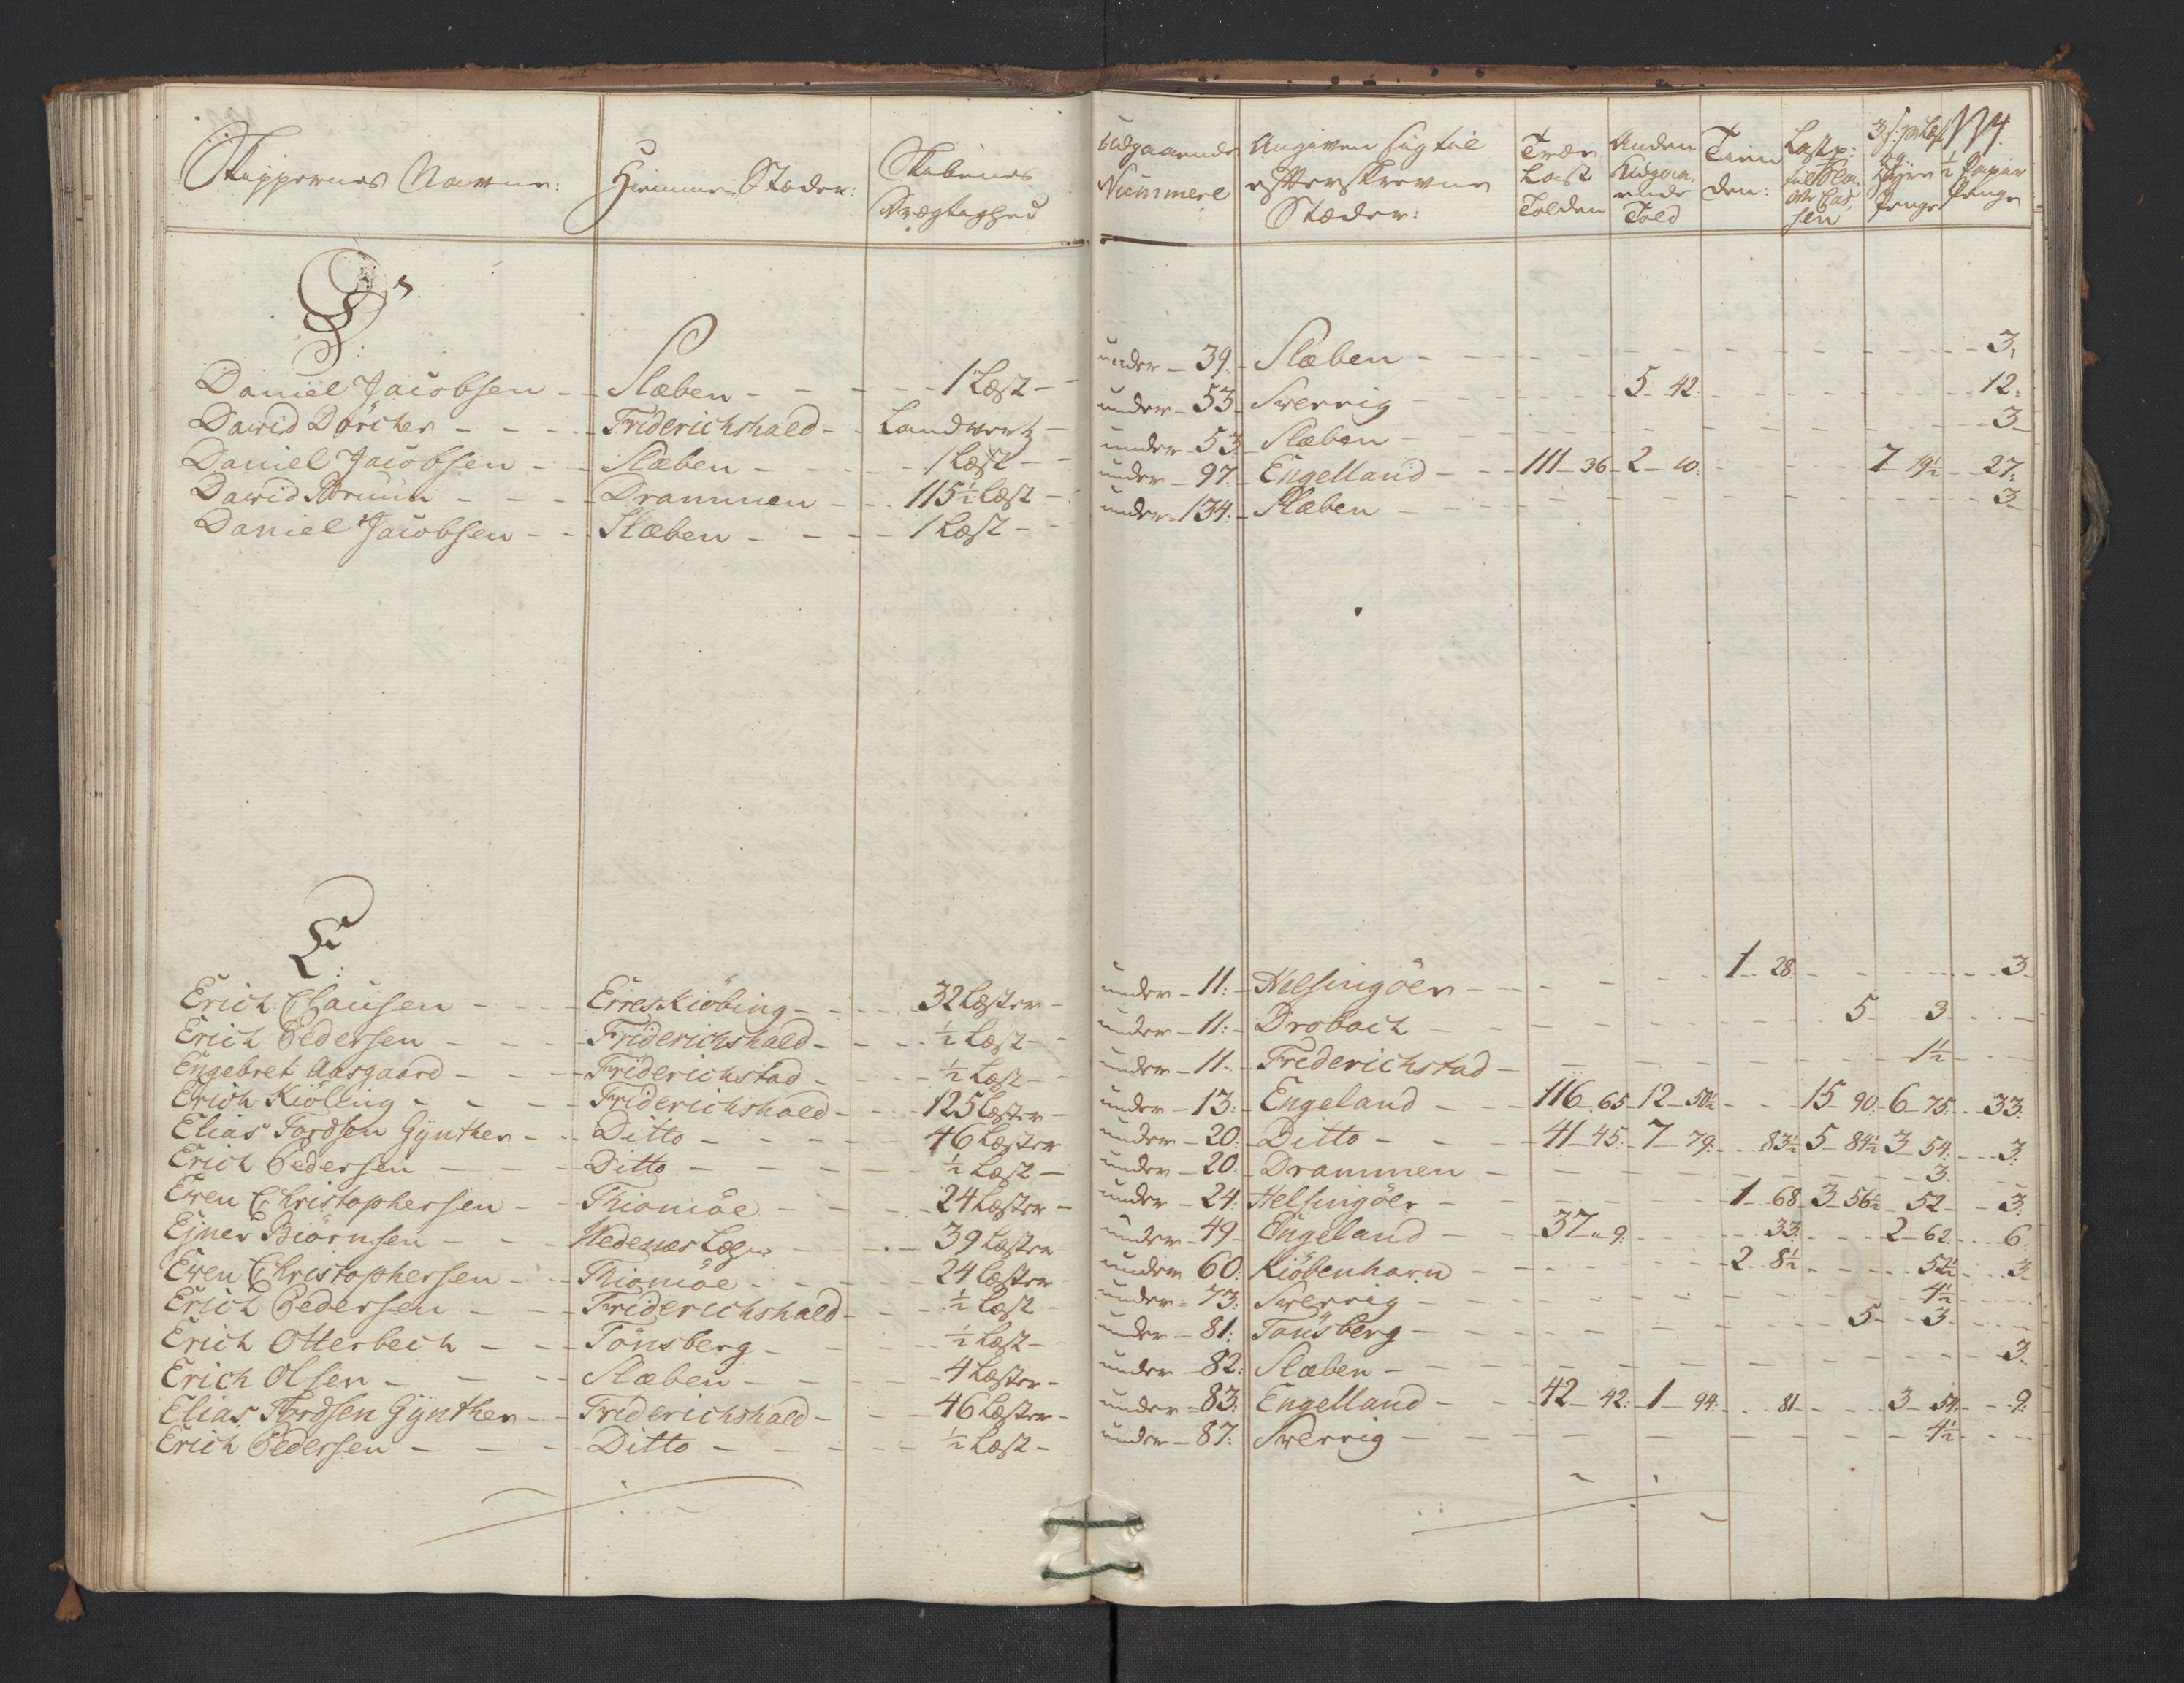 114
Skippernes Navne: Hiemme-Stæder: Skibenes Drægtighed Udgaaende Nummere Angiven sig til efterskrevne Stæder: Træe Last Tolden Anden Udgaaende Told Tienden: Penge ½ Papiir Penge
D:
Daniel Jacobsen - - Slæben - - - - 1 Læst - - under - 39. - Slæben - - - 3.
David Dörcher - - - - Friderichshald - - Landverts - under - 53. Sverrig - - - 5 - 42. - - - 12:
Daniel Jacobsen - - Slæben - - - - 1 Læst - - under - 53. Slæben - - - 3 -
David Bruun - - - Drammen - - - 115½ Læst - under - 97. - Engelland - - - 111 - 36 - 2 - 10. - - - 7 - 19½ - - 27:
Daniel Jacobsen - - Slæben - - - - 1 Læst - - under - 134: - Slæben - - - 3 -
E:
Erich Clausen - - - Erreskiöbing - - - 32 Læster - under - 11: - Helsingöer - - - 1 - 28. - - - 3 -
Erich Pedersen - - - Friderichshald - - - ½ Læst - - under - 11: - Drobach - - - 5 - 3 - - -
Engebret Aasgaard - - - Friderichstad - - - ½ Læst - - under - 11 - - Frederichstad - - - 1½ - - -
Erich Kiölling - - - Friderichshald - - - 125 Læster - under - 13: - Engeland - - - 116 - 65 - 12 - 50½ - - - 15 - 90 - 6 - 75 - - 33.
Elias Tordsen Gynther - - Ditto - - - 46 Læster under - 20. - Ditto - - - 41 - 45. - 7 - 79. - - 83½ - 5 - 84½ - 3 - 54. - - 3.
Erich Pedersen - - - Ditto - - - ½ Læst - under - 20. - Drammen - - - 3.
Even Christophersen - - Thiomöe - - - 24 Læster - under - 24: Helsingöer - - - 1 - 68 - 3 - 56½ - 52 - - 3.
Ejner Biörnsen - - - Nedenæs - - - 39 Læster under - 49 - Engeland - - - 37 - 9. - - - 33. - - - 2 - 62. - - 6.
Even Christophersen - - Thiomöe - - - 24 Læster under 60. Kiöbenhavn - - - 2 - 8½ - - - 52½ - - 3.
Erich Pedersen - - - Friderichshald - - - ½ Læst under - 73. Sverrig - - - 4½ - - -
Erich Otterbech - - - Tönsberg - - - ½ Læst - under - 81: Tönsberg - - - 5 - 3 - - -
Erich Olsen - - - Slæben - - - 4 Læster - under - 82: Slæben - - - 3.
Elias Tordsen Gynther - - Friderichshald - - - 46 Læster - under - 83. Engelland - - - 42 - 42: - 1 - 94: - - 81 - - - 3 - 54: - - 9:
Erich Pedersen - - - Ditto - - - ½ Læst - under - 87: Sverrig - - - 4½ - - -